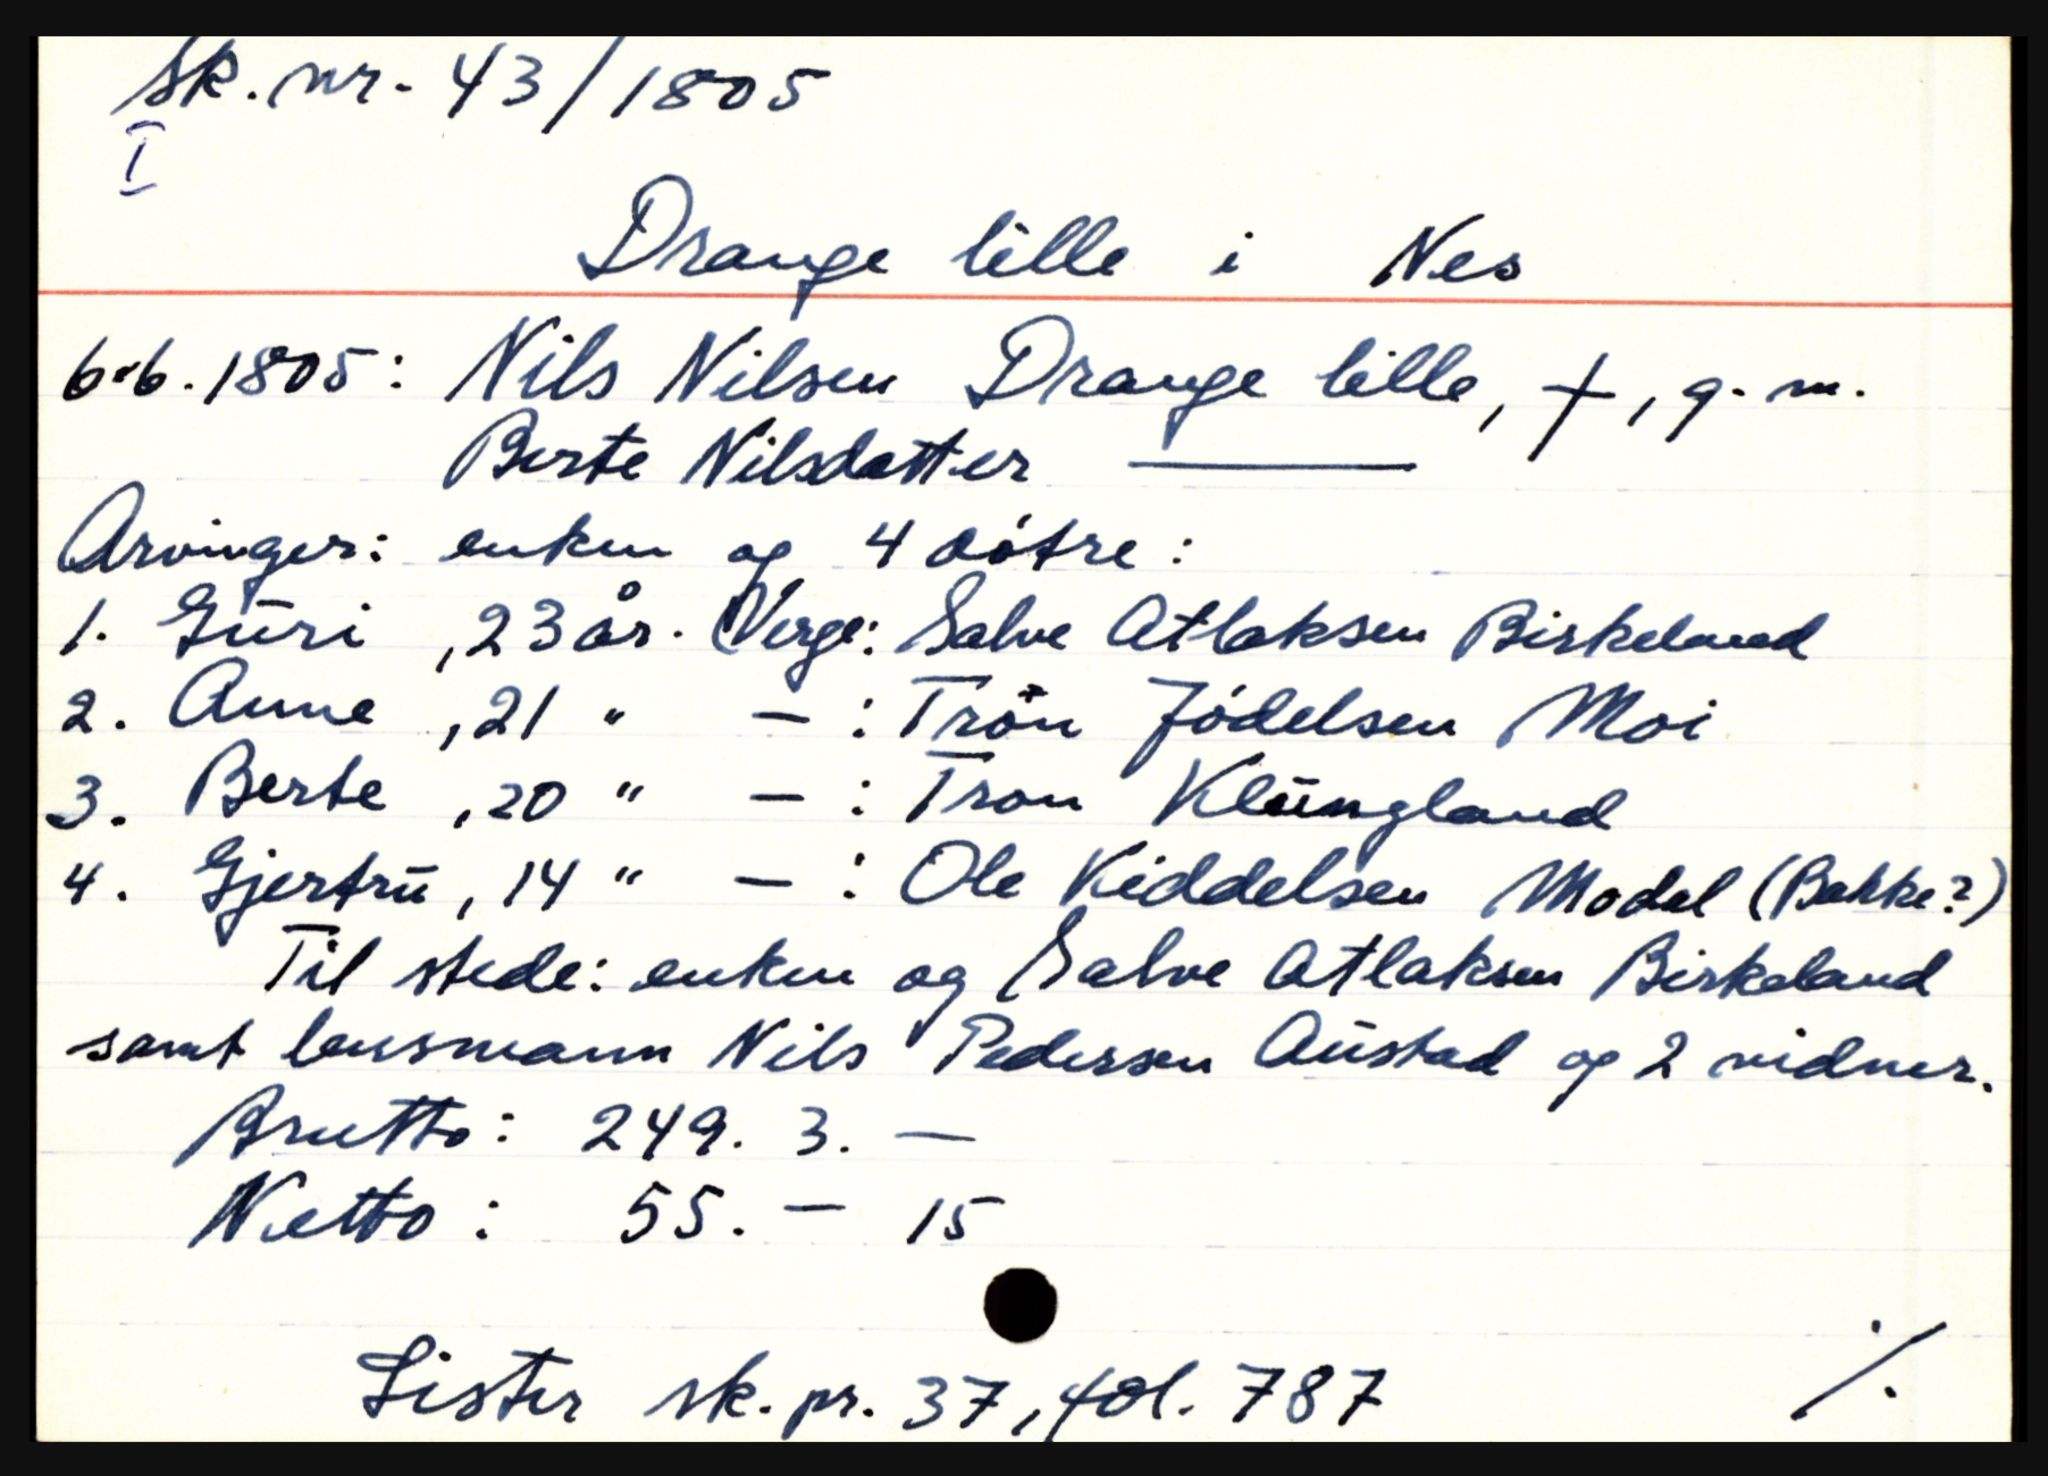 Sk. nr. 43/1805
I
Drange lille i Nes
6.6.1805: Nils Nilsen Drange lille, †, g. m.
Berte Nilsdatter ———
Arvinger: enken og 4 døtre:
1. Guri, 23 år. Verge: Salve Atlaksen Birkeland
2. Anne, 21 " — : Tron Jødelsen Moi
3. Berte, 20 " — : Tron Klungland
4. Gjertru, 14 " — : Ole Kiddelsen Modal (Bakke?)
Til stede: enken og Salve Atlaksen Birkeland
samt lensmann Nils Pedersen Austad og 2 vidner.
Brutto: 249. 3. —
Netto: 55. — 15
Lister sk. pr. 37, fol. 787 ./.